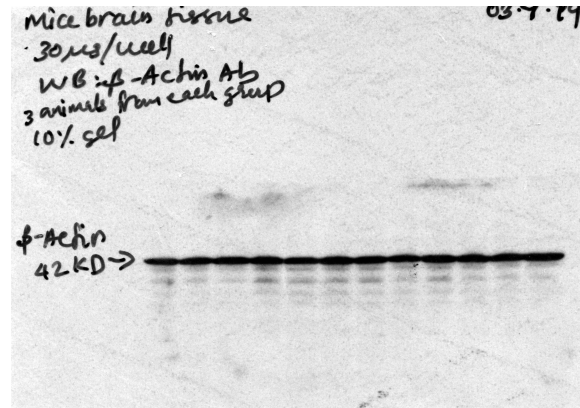 mice brain tissue
03.9.19
30µg/well
WB:-β-Actin Ab
3 animals from each group
10% gel
β-Actin
42KD→